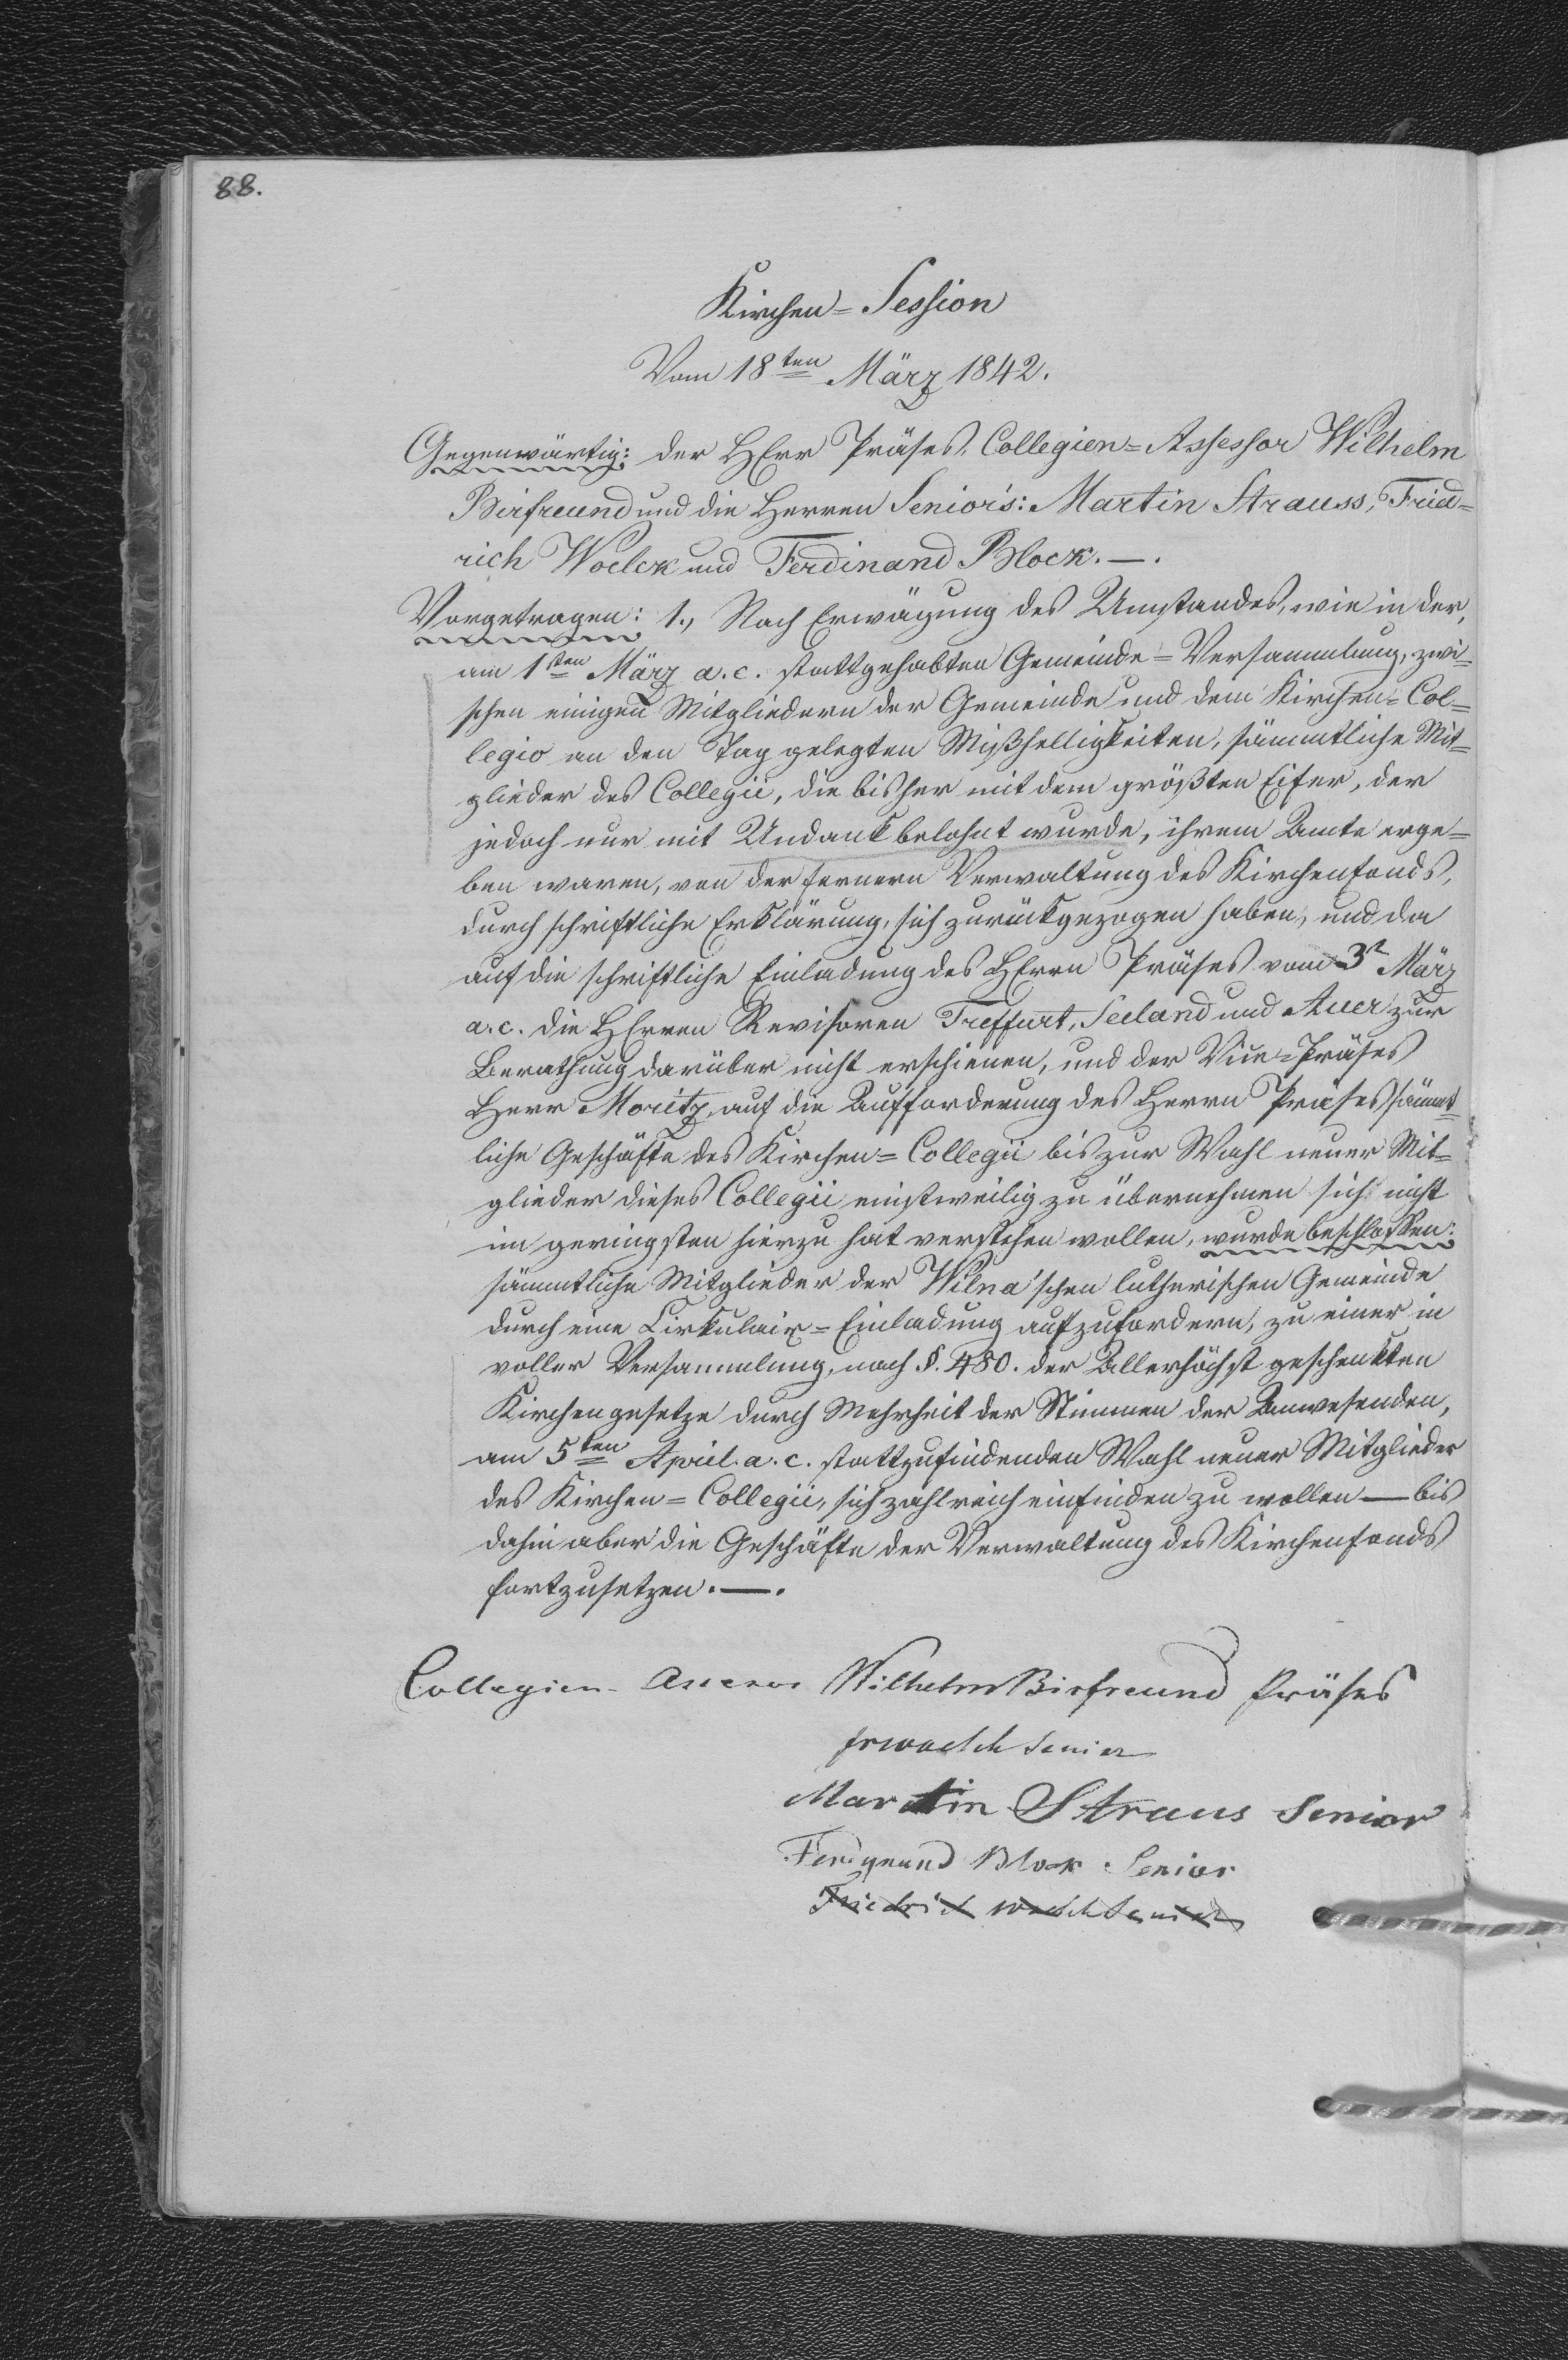 88.
Kirchen=Session
Vom 18ten März 1842.
Gegenwärtig: der HErr Präses, Collegien=Assessor Wilhelm
Birfreund und die Herren Senior's: Martin Strauss, Fried=
rich Woelck und Ferdinand Block.—.
Vorgetragen: 1., Nach Erwägung des Umstandes, wie in der,
am 1sten März a. c. stattgehabten Gemeinde=Versammlung, zwi=
schen einigen Mitgliedern der Gemeinde und dem Kirchen=Col=
legio an den Tag gelegten Mißhelligkeiten, sämmtliche Mit=
glieder des Collegii, die bisher mit dem größten Eifer, der
jedoch nur mit Undank belohnt wurde, ihrem Amte erge=
ben waren, von der fernern Verwaltung des Kirchenfonds,
durch schriftliche Erklärung, sich zurückgezogen haben, und da
auf die schriftliche Einladung des HErrn Präses vom 3t März
a. c. die HErren Revisoren Treffurt, Seeland und Auer zur
Berathung darüber nicht erschienen, und der Vice=Präses
Herr Moritz, auf die Aufforderung des Herrn Präses sämmt=
liche Geschäfte des Kirchen=Collegii bis zur Wahl neuer Mit=
glieder dieses Collegii einstweilig zu übernehmen sich nicht
im geringsten hierzu hat verstehen wollen, wurde beschlossen:
sämmtliche Mitglieder der Wilna'schen lutherischen Gemeinde
durch eine Cirkulair=Einladung aufzufordern, zu einer in
voller Versammlung, nach §. 480. der Allerhöchst geschenkten
Kirchengesetze durch Mehrheit der Stimmen der Anwesenden,
am 5ten April a. c. stattzufindenden Wahl neuer Mitglieder
des Kirchen=Collegii, sich zahlreich einfinden zu wollen — bis
dahin aber die Geschäfte der Verwaltung des Kirchenfonds
fortzusetzen.—.
Collegien- Assesor Wilhelm Birfreund Präses
Senior
Martin Straus Senior
Ferdynand Block Senior
Friedrich Senior